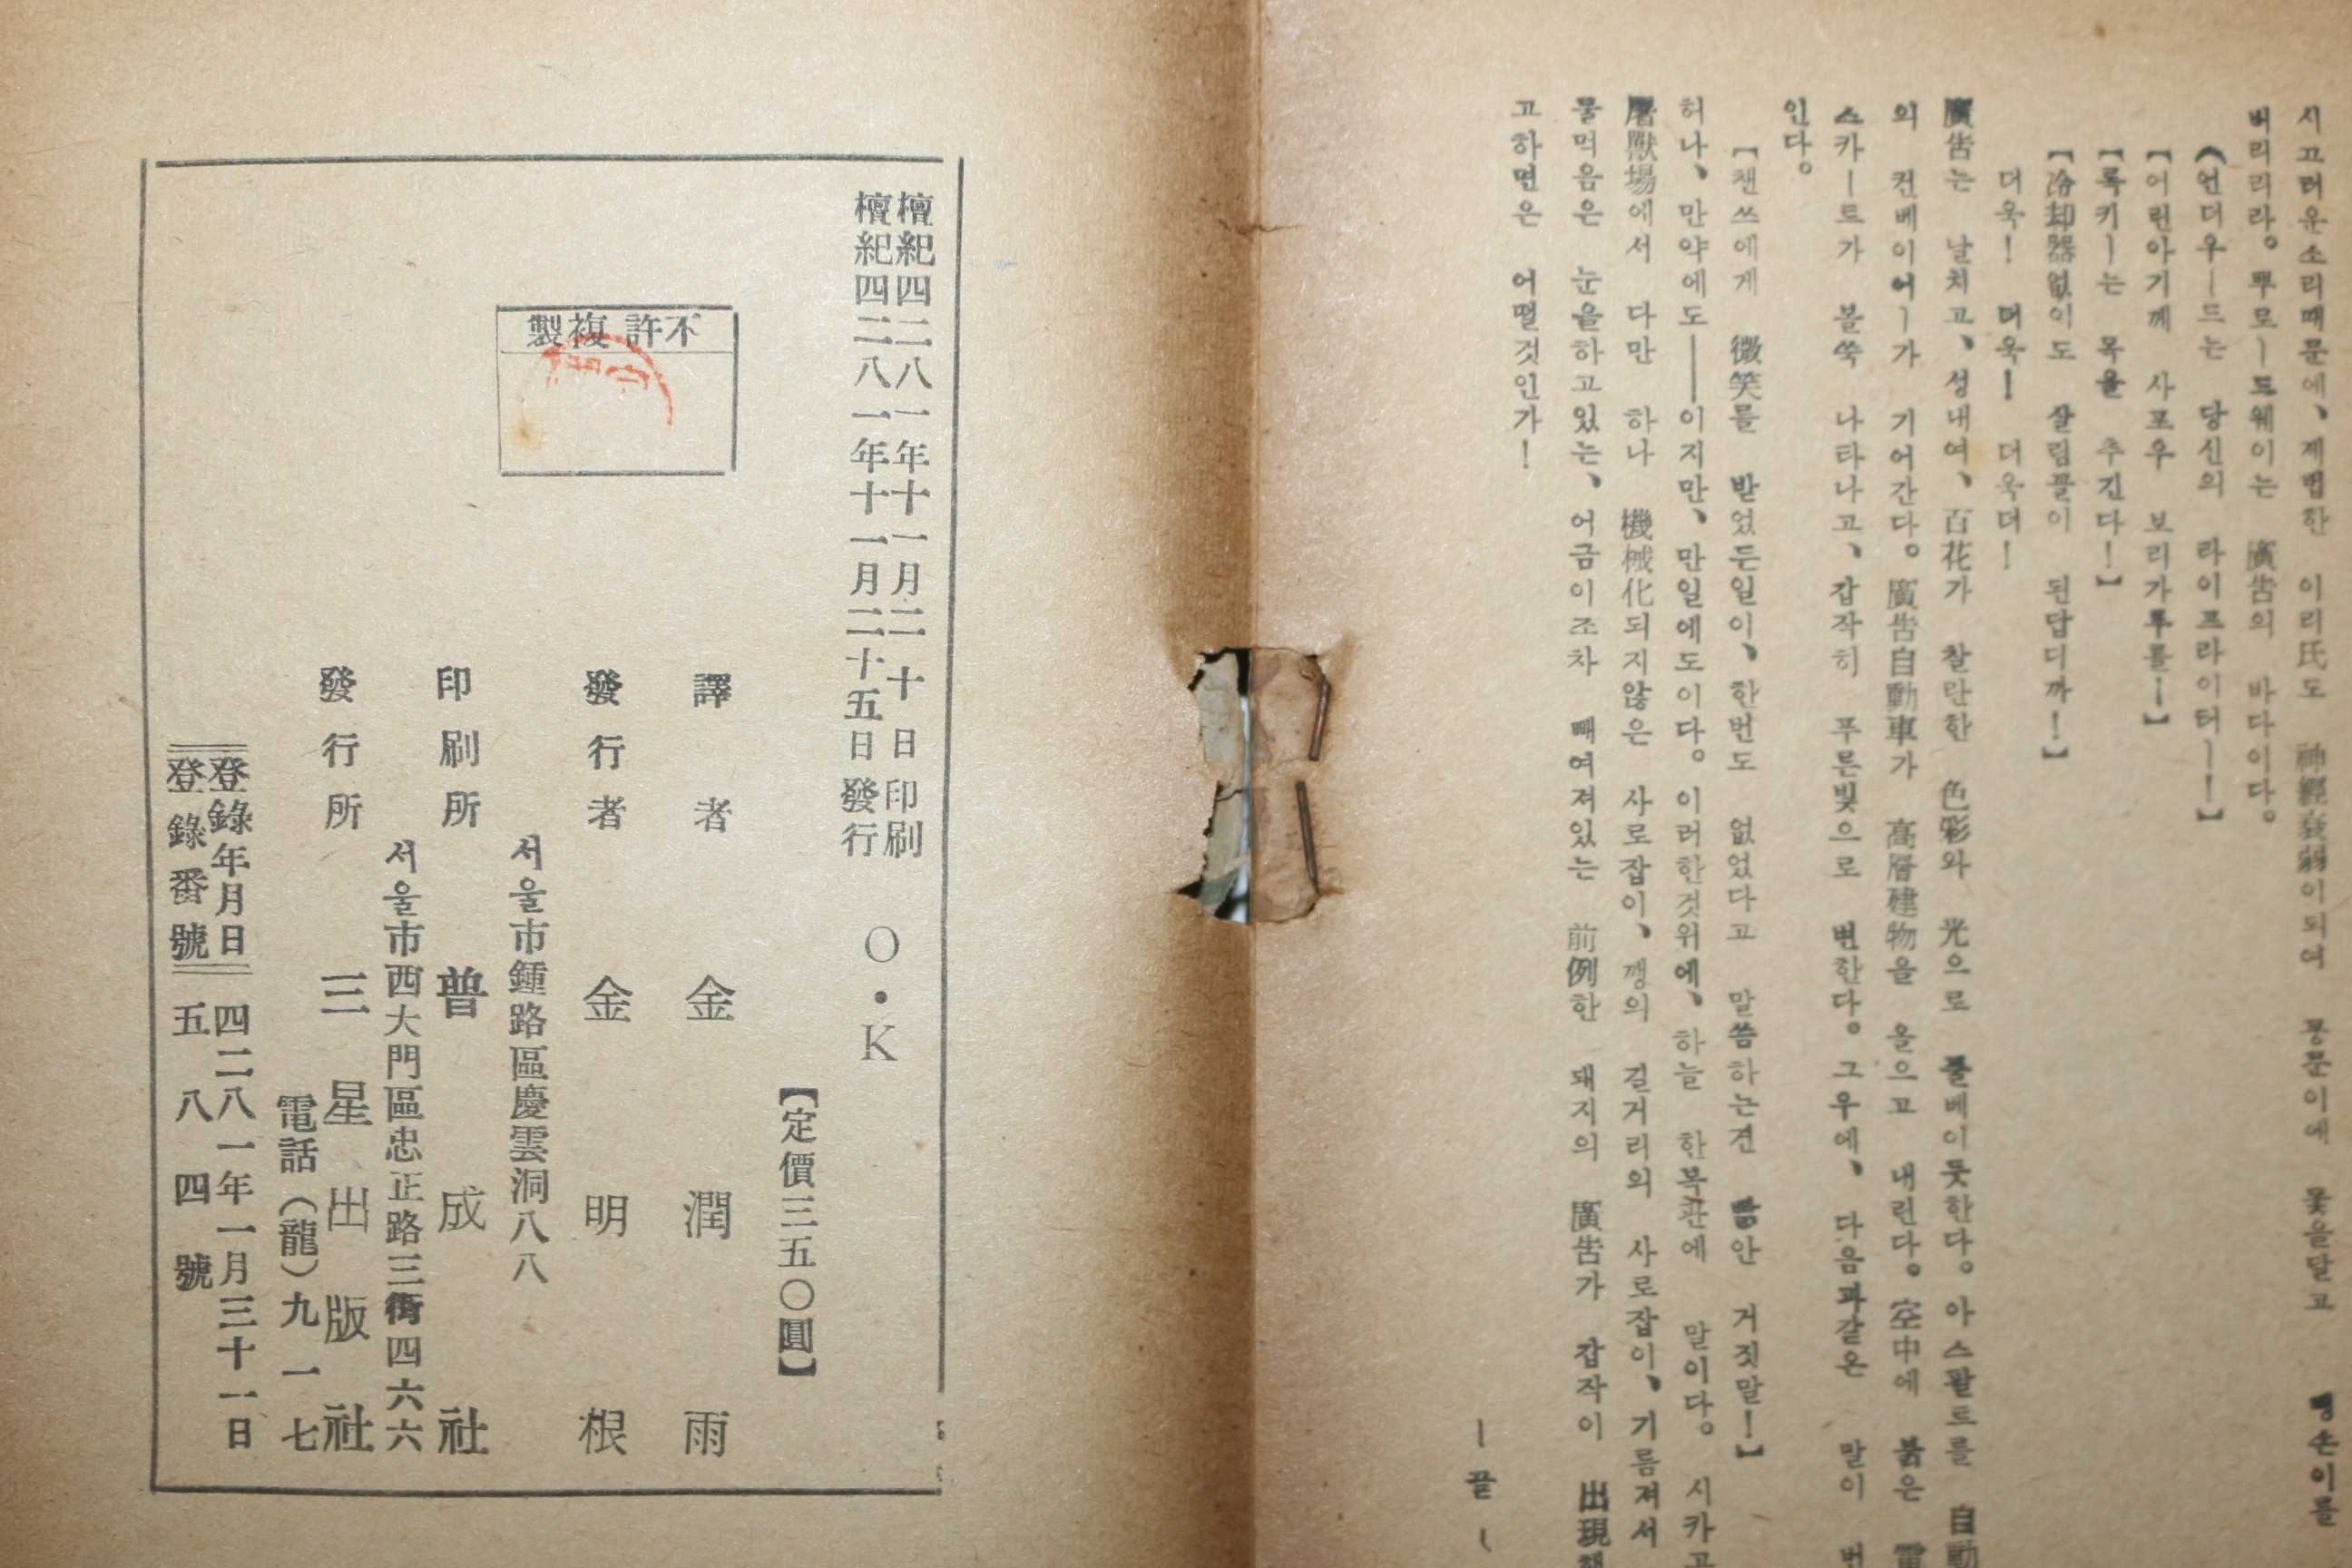 시끄러운소리때문에、제법한 이리氏도 神經衰弱이되여 꽁문이에 꽃을달고
버리리라。뿌로ー드웨이는 廣告의 바다이다。
《언더우ー드는 당신의 라이프라이터ー!】
【어린아기께 사포우 보리가루를ー】
【록키ー는 목을 추긴다!】
【冷却器없이도 살림꿀이 된답디까!】
더욱! 더욱! 더욱더!
廣告는 날치고、성내여、百花가 찰란한 色彩와 光으로 물베이듯한다。아스팔트를 自動
의 컨베이어ー가 기어간다。廣告自動車가 高層建物을 올으고 내린다。空中에 붉은 電
스카ー트가 불쑥 나타나고、갑작히 푸른빛으로 변한다。그우에、다음과같은 말이 번
인다。
【챈쓰에게 微笑를 받었든일이、한번도 없었다고 말씀하는견 안 거짓말!】
허나、만약에도――이지만、만일에도이다。이러한것위에、하늘 한복판에 말이다。시카고
屠獸場에서 다만 하나 機械化되지않은 사로잡이、깽의 길거리의 사로잡이、기름져서
물먹음은 눈을하고있는、어금이조차 빼여져있는 前例한 돼지의 廣告가 갑작이 出現
고하면은 어떨것인가!
ー끝ー
檀紀四二八一年十一月二十日印刷
檀紀四二八一年十一月二十五日發行
O・K
【定價三五〇圓】
譯者 金潤雨
發行者 金明根
서울市鍾路區慶雲洞八八
印刷所 普成社
서울市西大門區忠正路三街四六六
發行所 三星出版社
電話(龍)九一七
登錄年月日 四二八一年一月三十一日
登錄番號 五八四號
不許複製